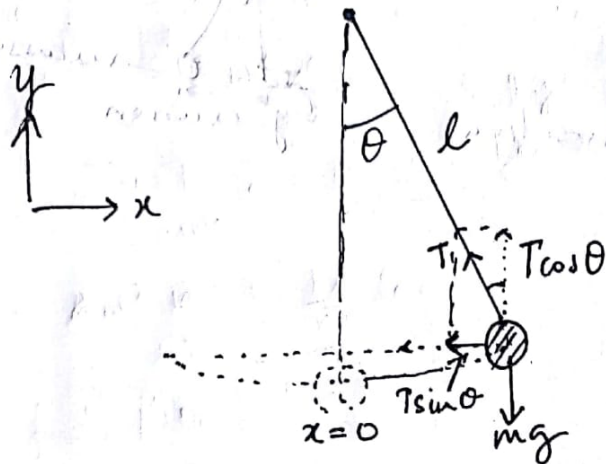 y
θ
l
x
T
Tcosθ
Tsinθ
x=0
mg